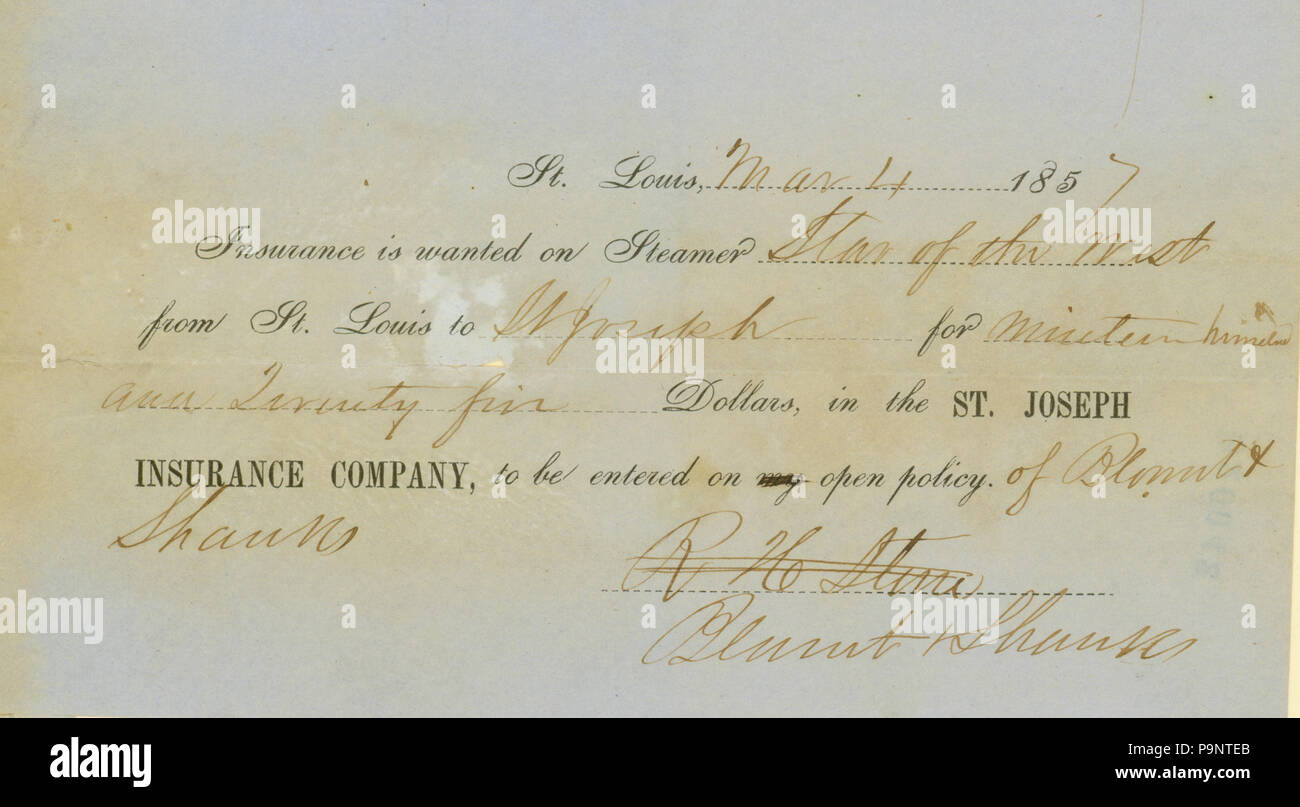 St. Louis, Mar 4 1857
Insurance is wanted on Steamer Star of the West
from St. Louis to St Joseph for Nineteen hundred
and Twenty five Dollars, in the ST. JOSEPH
INSURANCE COMPANY, to be entered on my open policy. of Blount &
Shanks
R H Stone
Blount & Shanks
alamy
alamy
Image ID: P9NTEB
www.alamy.com